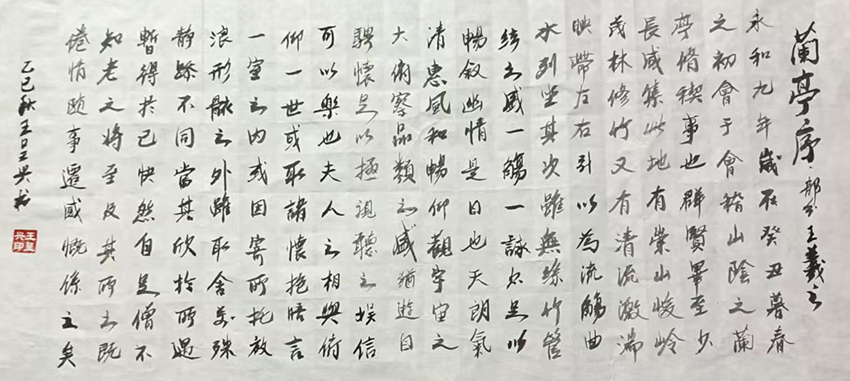 蘭亭序 部分 王羲之
永和九年歲在癸丑暮春
之初會于會稽山陰之蘭
亭脩禊事也群賢畢至少
長咸集此地有崇山峻岭
茂林修竹又有清流激湍
映帶左右引以為流觴曲
水列坐其次雖無絲竹管
絃之盛一觴一詠亦足以
暢敘幽情是日也天朗氣
清惠風和暢仰觀宇宙之
大俯察品類之盛遊目
騁懷足以極視聽之娱信
可以樂也夫人之相與俯
仰一世或取諸懷抱晤言
一室之内或因寄所托放
浪形骸之外雖取舍萬殊
静躁不同當其欣於所遇
暫得於己快然自足僧不
知老之將至及其所之既
倦情随事遷感慨係之矣
乙巳秋王